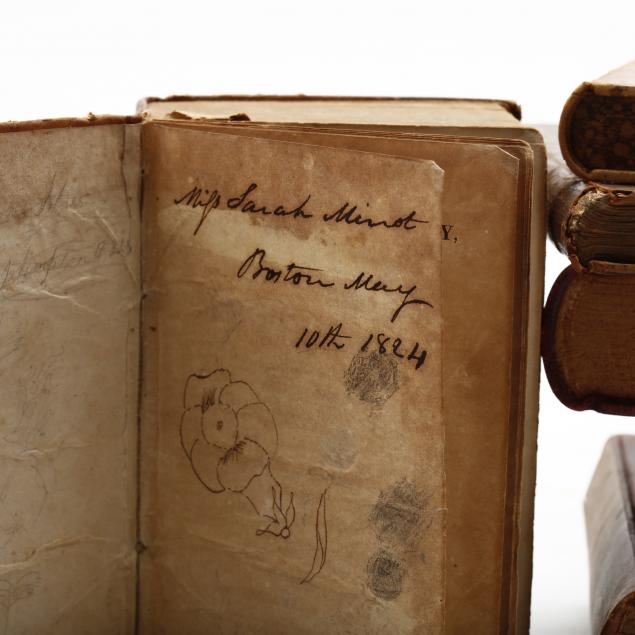 Miſs Sarah Minot
Y,
Boston May
10th 1824